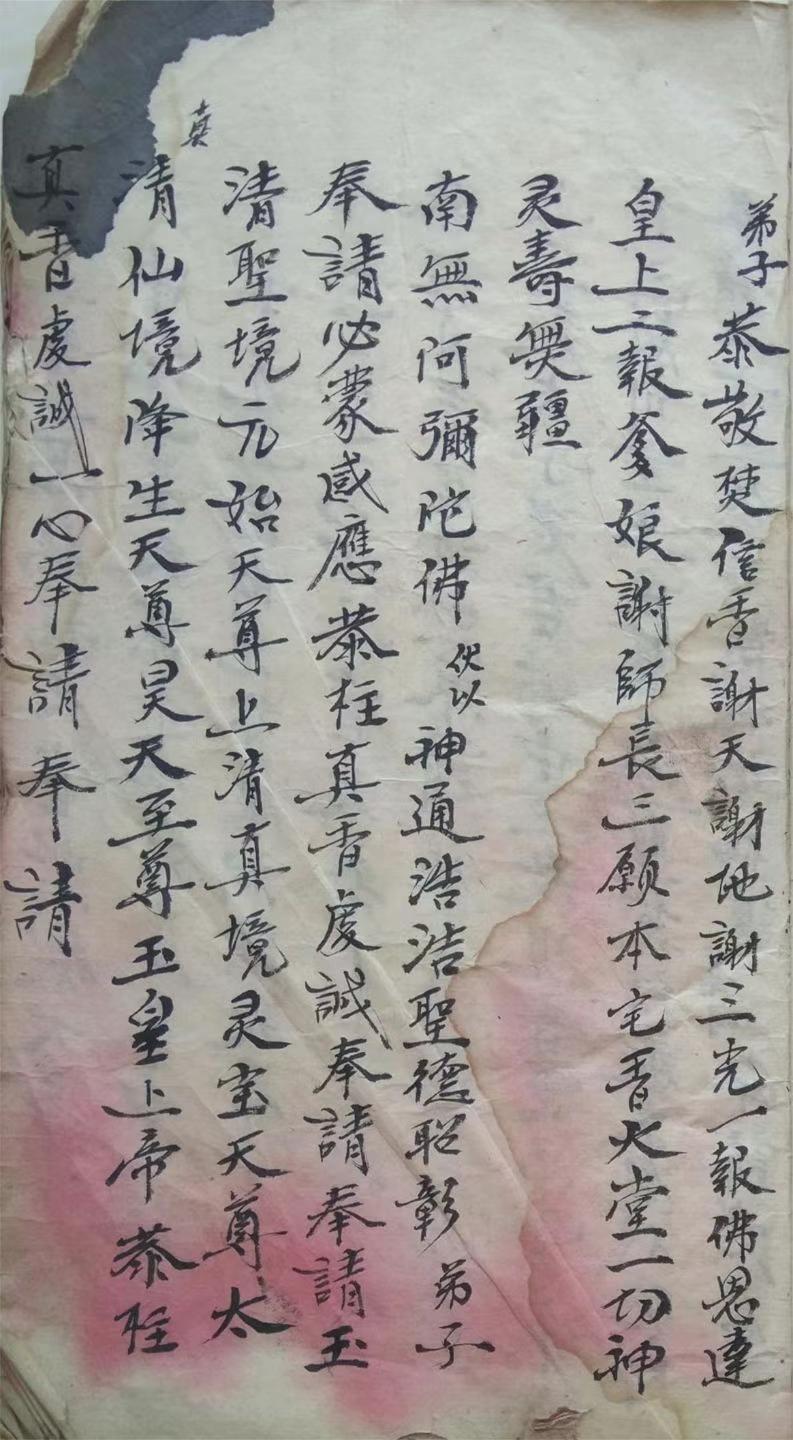 弟子恭敬焚信香謝天謝地謝三光一報佛恩達
皇上二報爹娘謝師長三願本宅香火堂一切神
灵壽無疆
南無阿彌陀佛伏以神通浩浩聖德昭彰弟子
奉請必蒙感應恭柱真香虔誠奉請奉請玉
清聖境元始天尊上清真境灵宝天尊太
真
清仙境降生天尊昊天至尊玉皇上帝恭柱
真香虔誠一心奉請奉請